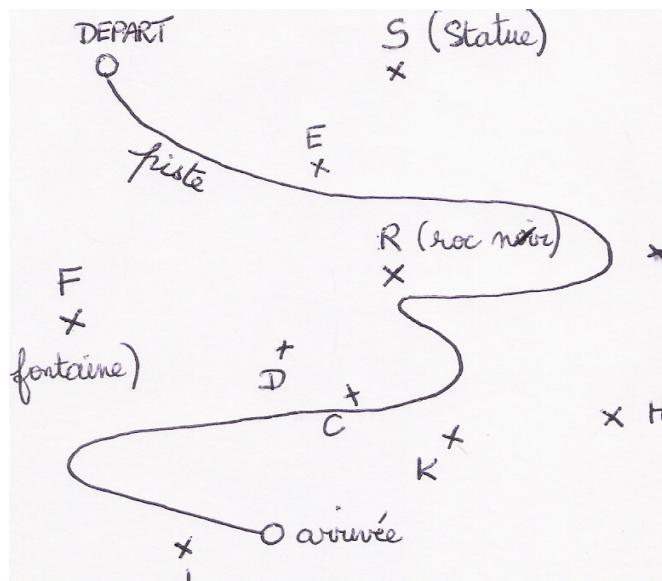 DEPART
S (Statue)
E
piste
R (roc noir)
F
fontaine)
D
C
K
arrivée